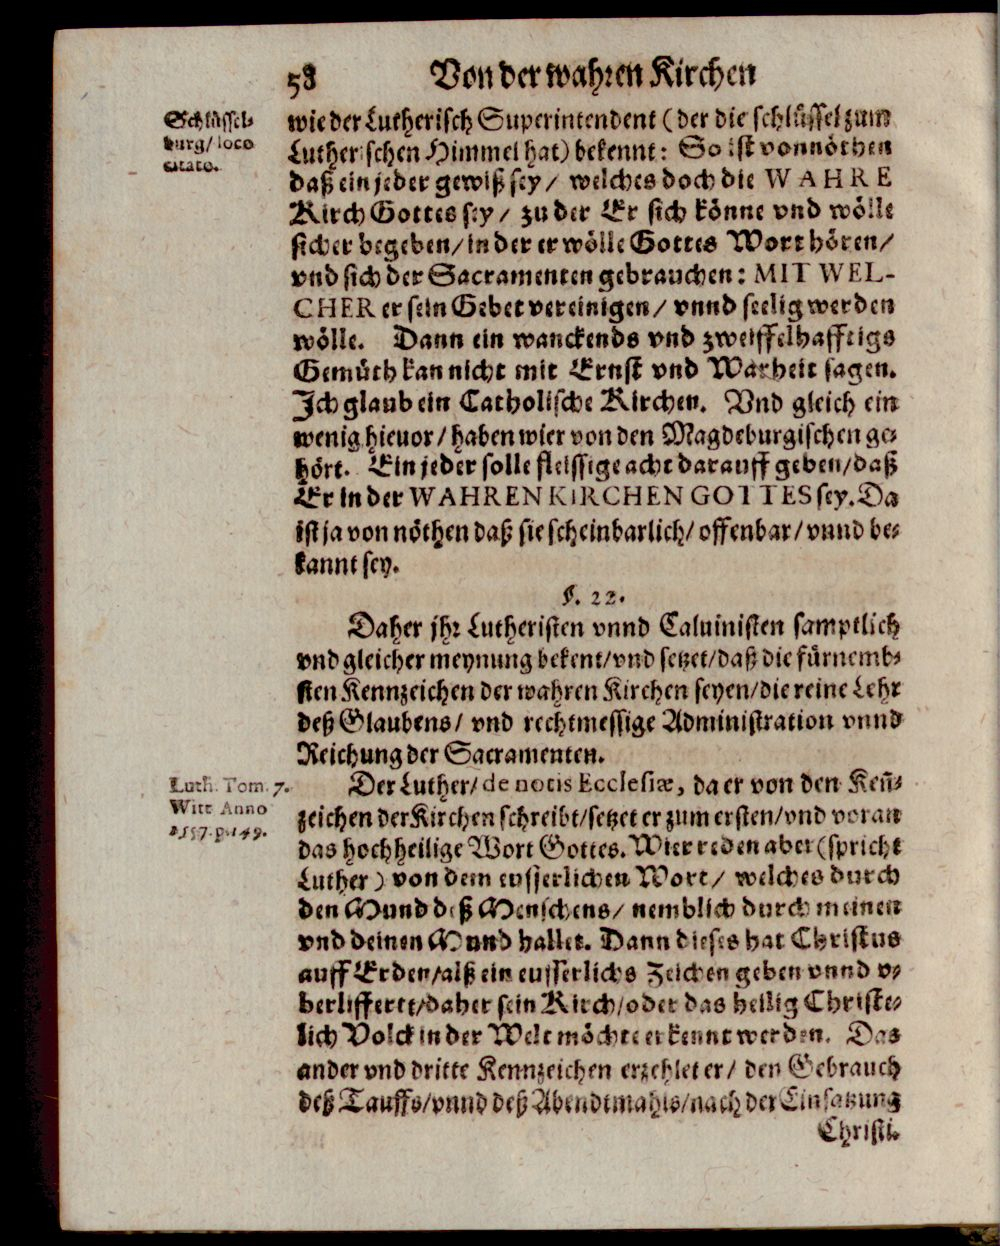 58 Von der wahren Kirchen
Schlüssel-
burg/ loco
citato.
wie der Lutherisch Superintendent (der die schlüssel zum
Lutherischen Himmel hat) bekennt: So ist vonnöthen
daß ein jeder gewiß sey/ welches doch die WAHRE
Kirch Gottes sey/ zu der Er sich könne vnd wölle
sicher begeben/ in der er wölle Gottes Wort hören/
vnd sich der Sacramenten gebrauchen: MIT WEL-
CHER er sein Gebet vereinigen/ vnnd seelig werden
wölle. Dann ein wanckends vnd zweiffelhafftigs
Gemüth kan nicht mit Ernst vnd Warheit sagen.
Jch glaub ein Catholische Kirchen. Vnd gleich ein
wenig hieuor/ haben wier von den Magdeburgischen ge-
hört. Ein jeder solle fleissige acht darauff geben/ daß
Er in der WAHREN KIRCHEN GOTTES sey. Da
ist ja von nöthen daß sie scheinbarlich/ offenbar/ vnnd be-
kannt sey.
§. 22.
Daher jhr Lutheristen vnnd Caluinisten samptlich
vnd gleicher meynung bekent/ vnd setzet/ daß die fürnemb-
sten Kennzeichen der wahren Kirchen seyen/ die reine Lehr
deß Glaubens/ vnd rechtmessige Administration vnnd
Reichung der Sacramenten.
Luth. Tom. 7.
Witt Anno
1557. p. 149.
Der Luther/ de notis Ecclesiæ, da er von den Keñ-
zeichen der Kirchen schreibt/ setzet er zum ersten/ vnd voran
das hochheilige Wort Gottes. Wier reden aber (spricht
Luther) von dem eusserlichen Wort/ welches durch
den Mund deß Menschens/ nemblich durch meinen
vnd deinen Mund hallet. Dann dieses hat Christus
auff Erden/ alß ein eusserlichs Zeichen geben vnnd v-
berliffertt/ daher sein Kirch/ oder das heilig Christe-
lich Volck in der Welt möchte erkennt werden. Das
ander vnd dritte Kennzeichen erzehlet er/ den Gebrauch
deß Tauffs/ vnnd deß Abendtmahls/ nach der Einsatzung
Christi.